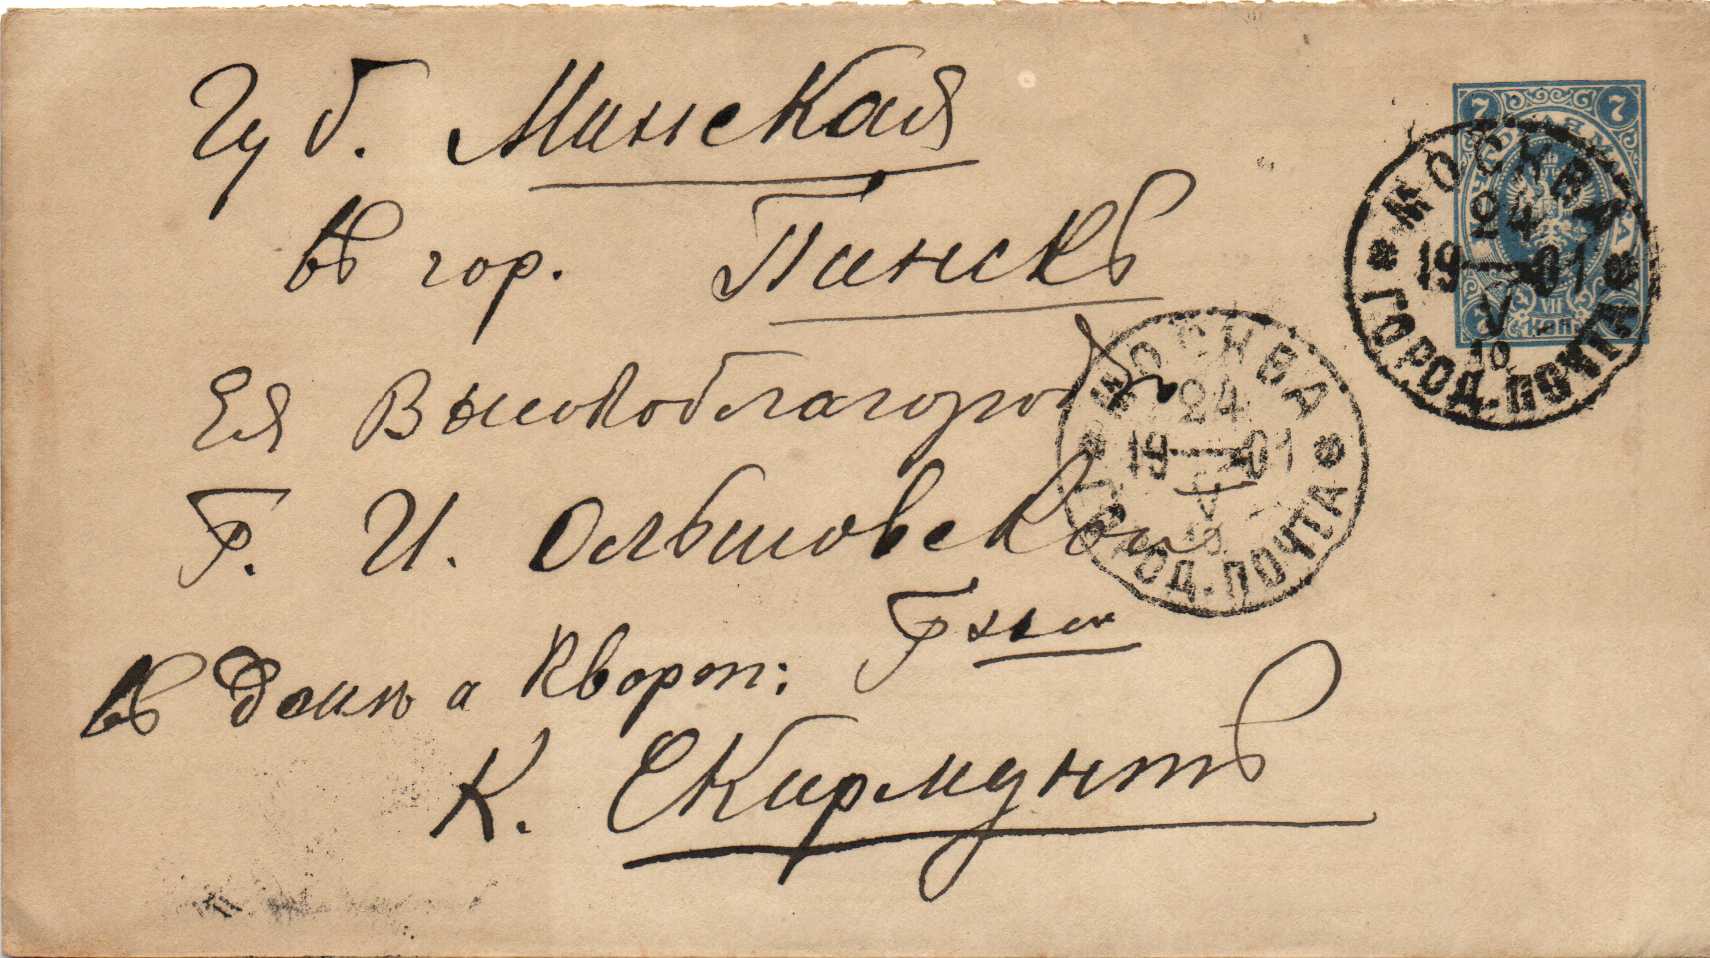 Губ. Минская
въ гор. Пинскъ
Ея Высокоблагородію
Г. И. Ольшовской
въ домѣ а кварт:
Г-жи
К. Скирмунтъ
7 7
МОСКВА
24
19 01
V
10
ГОРОД. ПОЧТА
7 коп.
МОСКВА
24
19 01
V
10
ГОРОД. ПОЧТА